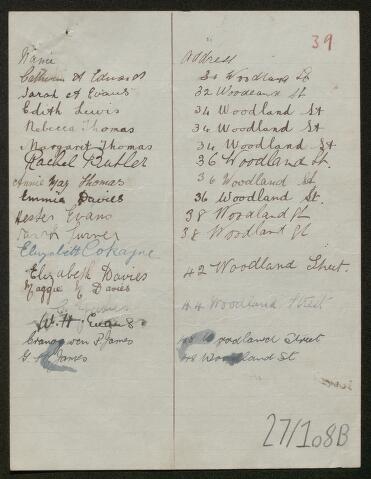 39
Name Address
Catherine A Edwards 30 Woodland St
Sarah A Evans 32 Woodland St
Edith Lewis 34 Woodland St
Rebecca Thomas 34 Woodland St
Margaret Thomas 34 Woodland St
Rachel Butler 36 Woodland St.
Annie May Thomas 36 Woodland St
Emmia Davies 36 Woodland St.
Hester Evans 38 Woodland St
Sarah Turner 38 Woodland St
Elizabeth Cokayne
Elizabeth Davies 42 Woodland Street.
Maggie M Davies
44 Woodland Street
W. H. Evans
Cranogwen P. James Woodland Street
G. James 48 Woodland St
27/108B